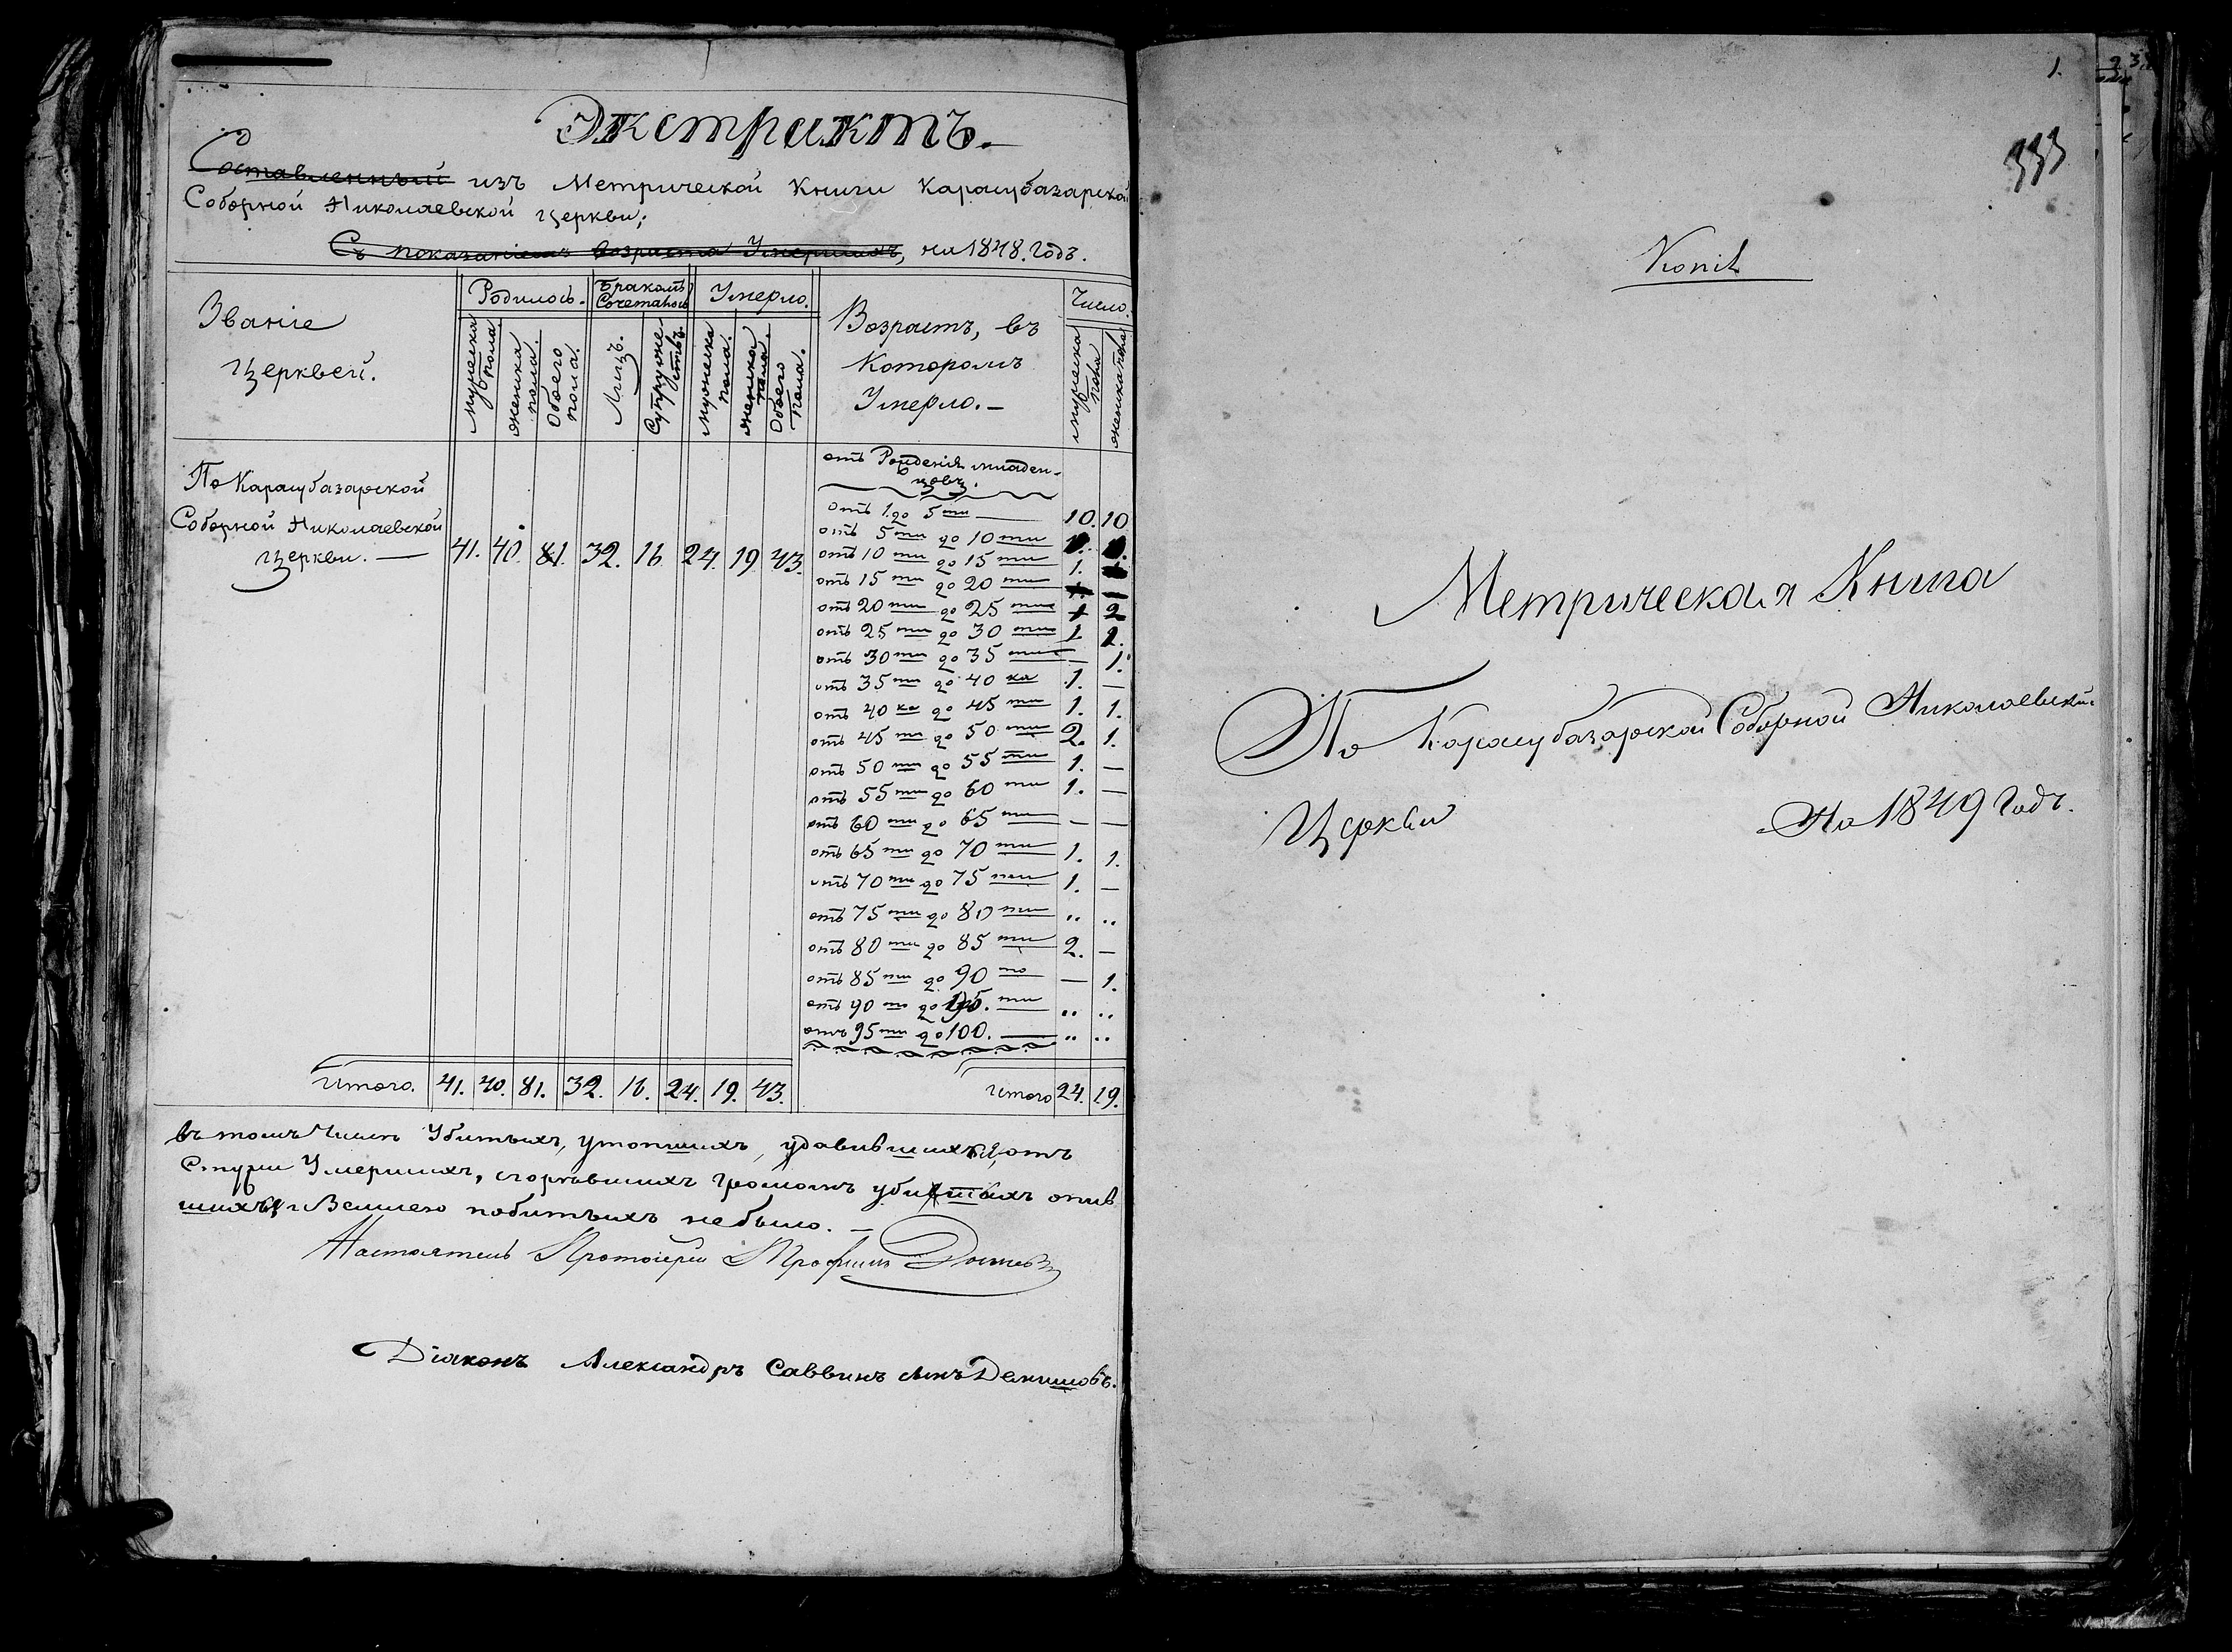 Экстрактъ.
Составленный изъ Метрической Книги Карасубазарской
Соборной Николаевской Церкви;
Съ показаніемъ возраста Умершихъ, на 1848. Годъ.
Званіе
Церквей.
Родилось.
Бракомъ
Сочеталось
Умерло.
Возрастъ, въ
Которомъ
Умерло.—
Число.
мужеска пола.
женска пола.
Обоего пола.
Лицъ.
Супружествъ.
мужеска пола.
женска пола.
Обоего пола.
мужеска пола
женска пола
По Карасубазарской
Соборной Николаевской
Церкви. — 41. 40. 81. 32. 16 24. 19 43.
отъ Рожденія младен-
цовъ.
отъ 1. до 5 ти — 10. 10
отъ 5 ти до 10 ти
отъ 10 ти до 15 ти 1.
отъ 15 ти до 20 ти —
отъ 20 ти до 25 ти 1 2
отъ 25 ти до 30 ти 1 2.
отъ 30 ти до 35 ти — 1.
отъ 35 ти до 40 ка 1. —
отъ 40 ка до 45 ти 1. 1.
отъ 45 ти до 50 ти 2. 1.
отъ 50 ти до 55 ти 1. —
отъ 55 ти до 60 ти 1. —
отъ 60 ти до 65 ти — —
отъ 65 ти до 70 ти 1. 1.
отъ 70 ти до 75 ти 1. —
отъ 75 ти до 80 ти „ „
отъ 80 ти до 85 ти 2. —
отъ 85 ти до 90 то — 1.
отъ 90 то до 95. ти „ „
отъ 95 ти до 100. — „ „
Итого. 41. 40. 81. 32. 16. 24. 19. 43.
Итого 24. 19.
въ томъ Числѣ Убитыхъ, утопшихъ, удавившихся, отъ
Стужи Умершихъ, сгорѣвшихъ громомъ убитыхъ опив
шихся и Землею побитыхъ небыло. —
Настоятель Протоіерей Трофимъ
Діаконъ Александръ Саввинъ сынъ Демишовъ.
1.
333
Копія
Метрическая Книга
По Карасубазарской Соборной Николаевской
Церкви На 1849 Годъ.